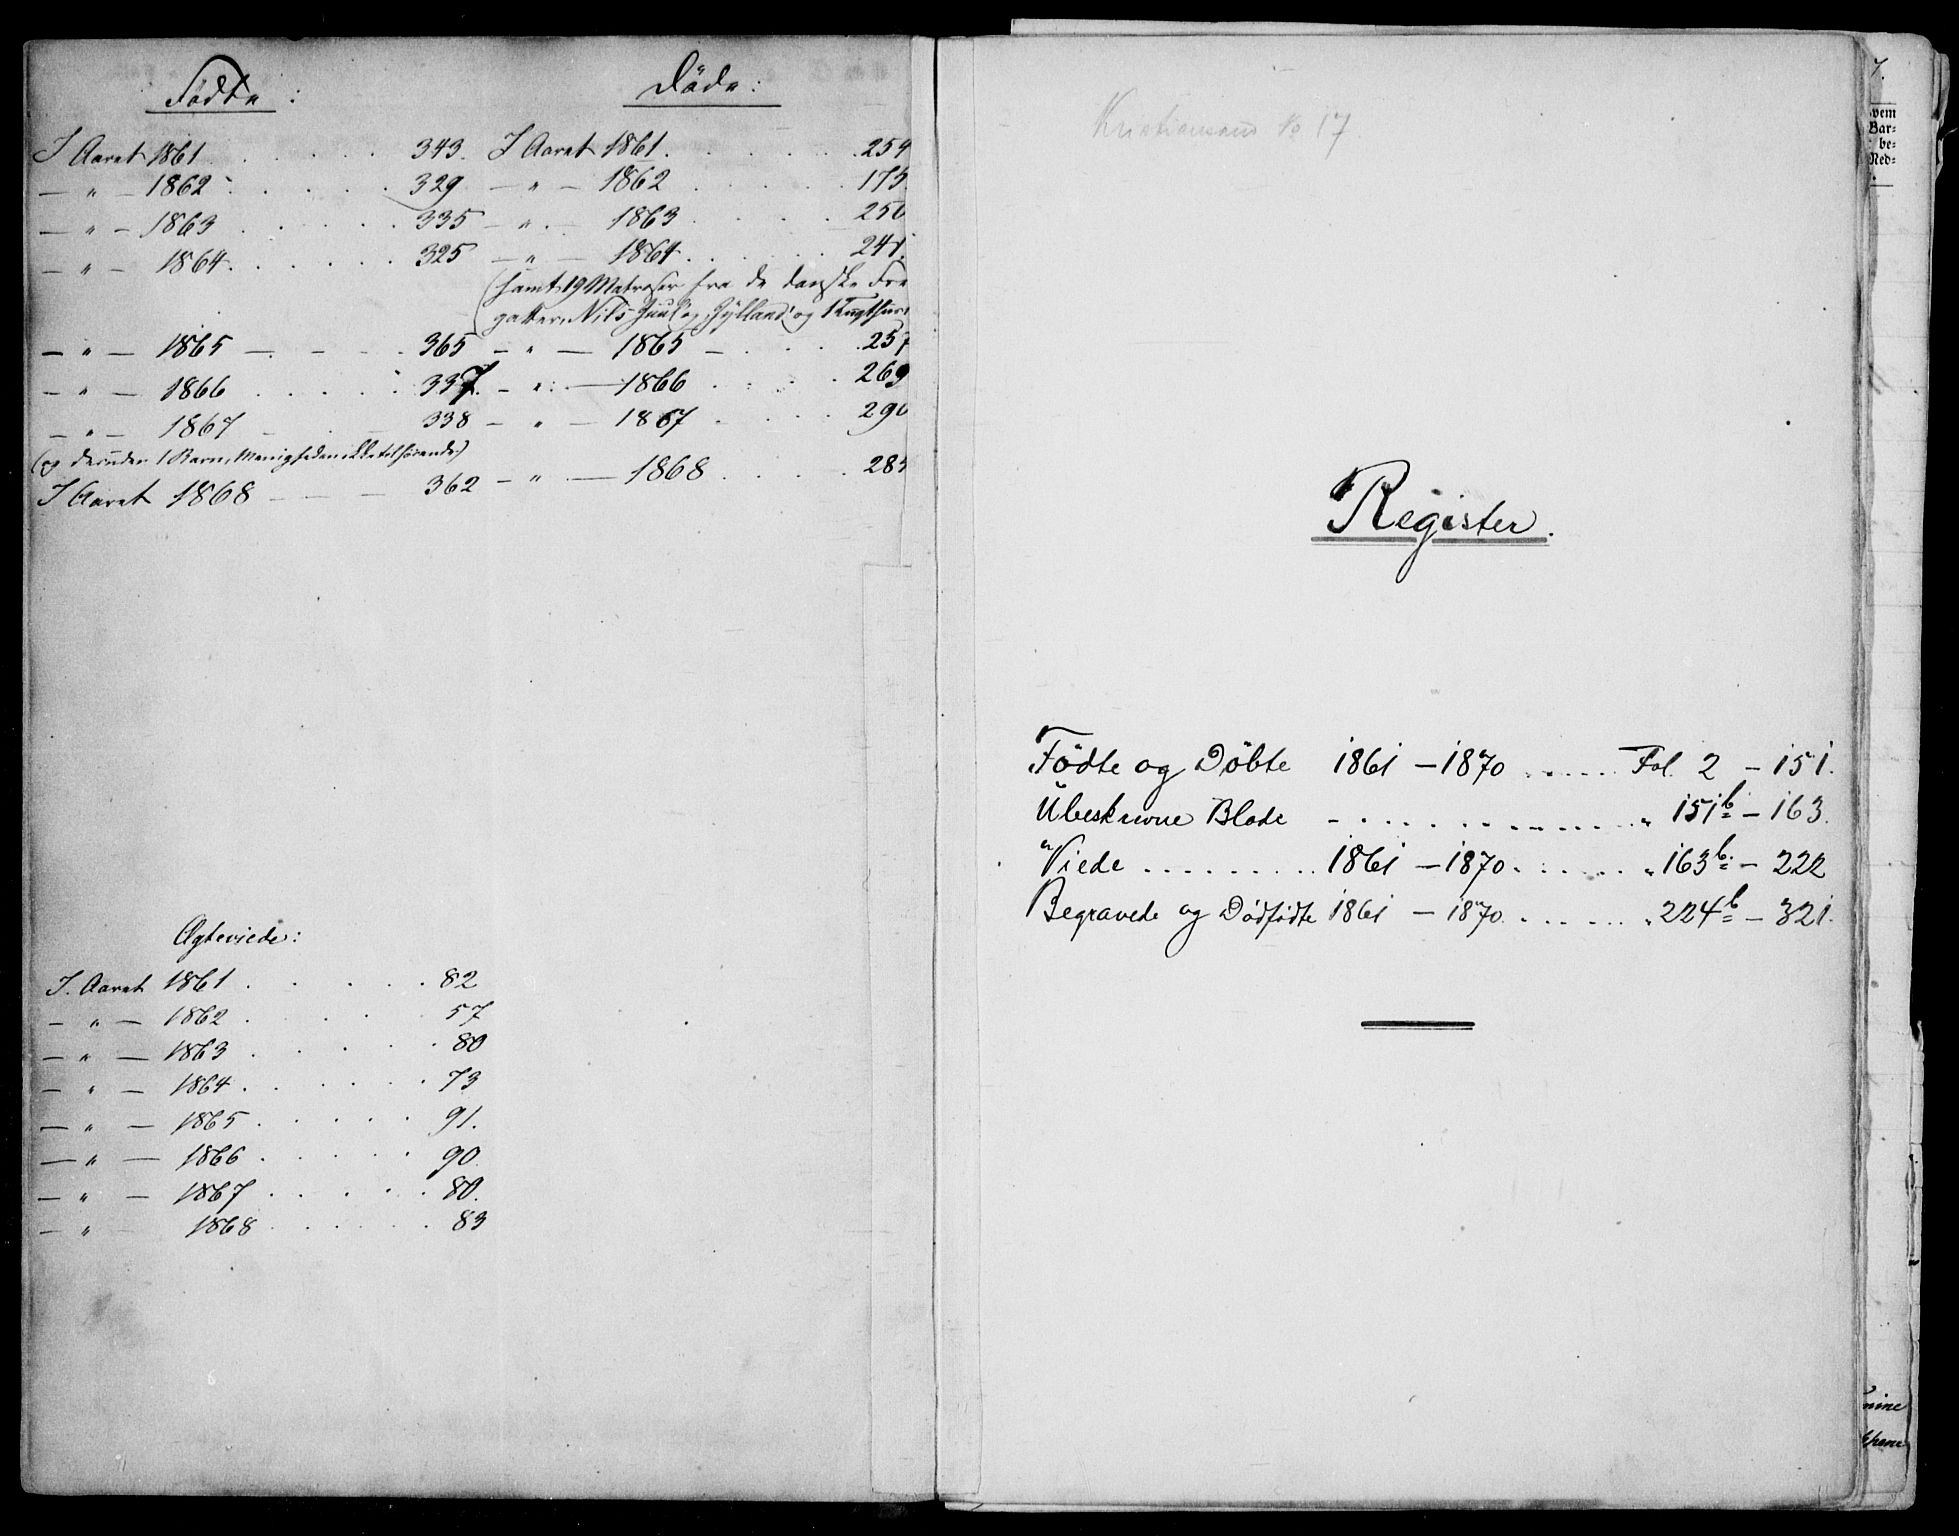 Födte:
I Aaret 1861 . . . . . 343.
— " — 1862 . . . . . 329
— " — 1863 . . . . . 335
— " — 1864 . . . . . 325
— " — 1865 — . — . 365
— " — 1866 . . . . . 337.
— " — 1867 — . — 338
(og desuden 1 Barn, Menigheden ikke tilhörende)
I Aaret 1868 — — — 362
Döde:
I Aaret 1861 . . . . . 254
— " — 1862 . . . . . 175
— " — 1863 . . . . 250
— " — 1864 . . . . . 241
(samt 19 Matroser fra de danske Fre
gatter, Nils Juul og Jylland og 1
— " — 1865 — . . . 257
— " — 1866 . . . . 269
— " — 1867 . . . . 290
— " — 1868 . . . . 285
Ægteviede:
I Aaret 1861 . . . . . 82
— " — 1862 . . . . . 57
— " — 1863 . . . . . 80
— " — 1864 . . . . . 73
— " — 1865 . . . . . 91.
— " — 1866 . . . . . 90
— " — 1867 . . . . . 80.
— " — 1868 . . . . . 83
Kristiansand No 17.
Register.
Födte og Döbte 1861 — 1870 . . . . . Fol. 2 — 151.
Ubeskrevne Blade - . . . . . . . . . . . " 151b — 163.
Viede . . . . . . . . . 1861 — 1870 . . . . . . " 163b — 222
Begravede og Dödfödte 1861 — 1870 . . . . . . " 224b — 321.
7.
vem
Bar-
be-
Ned-